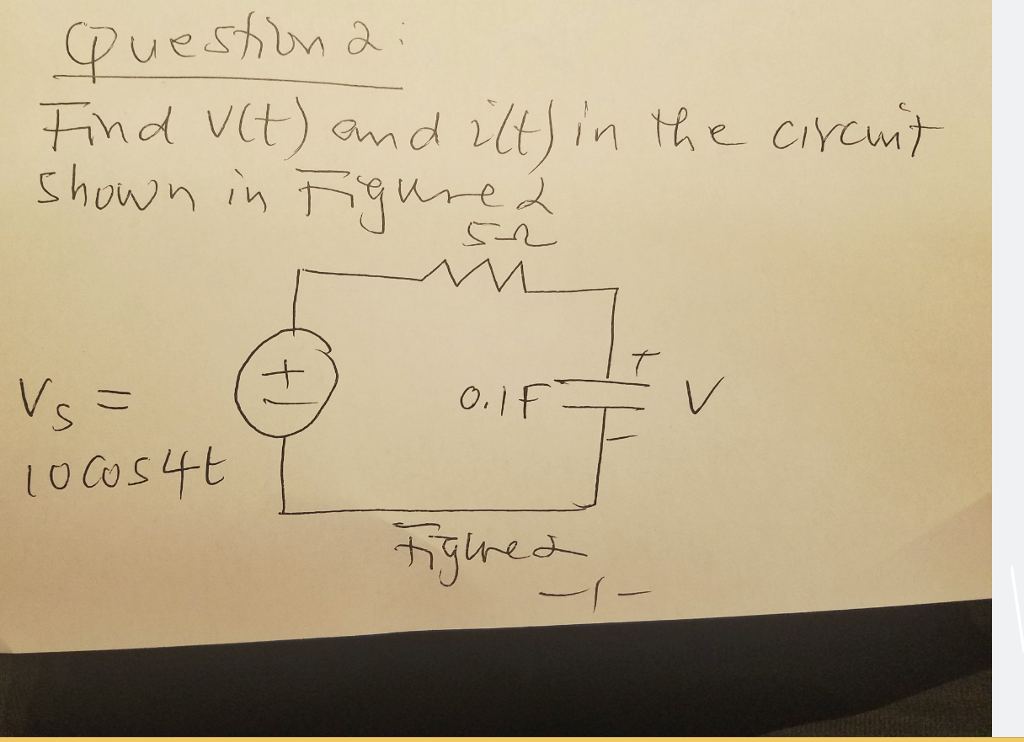 Question 2:
Find v(t) and i(t) in the circuit
shown in Figure 2
5Ω
+
Vs =
+
−
0.1F
V
−
10 cos 4t
Figure 2
-1-